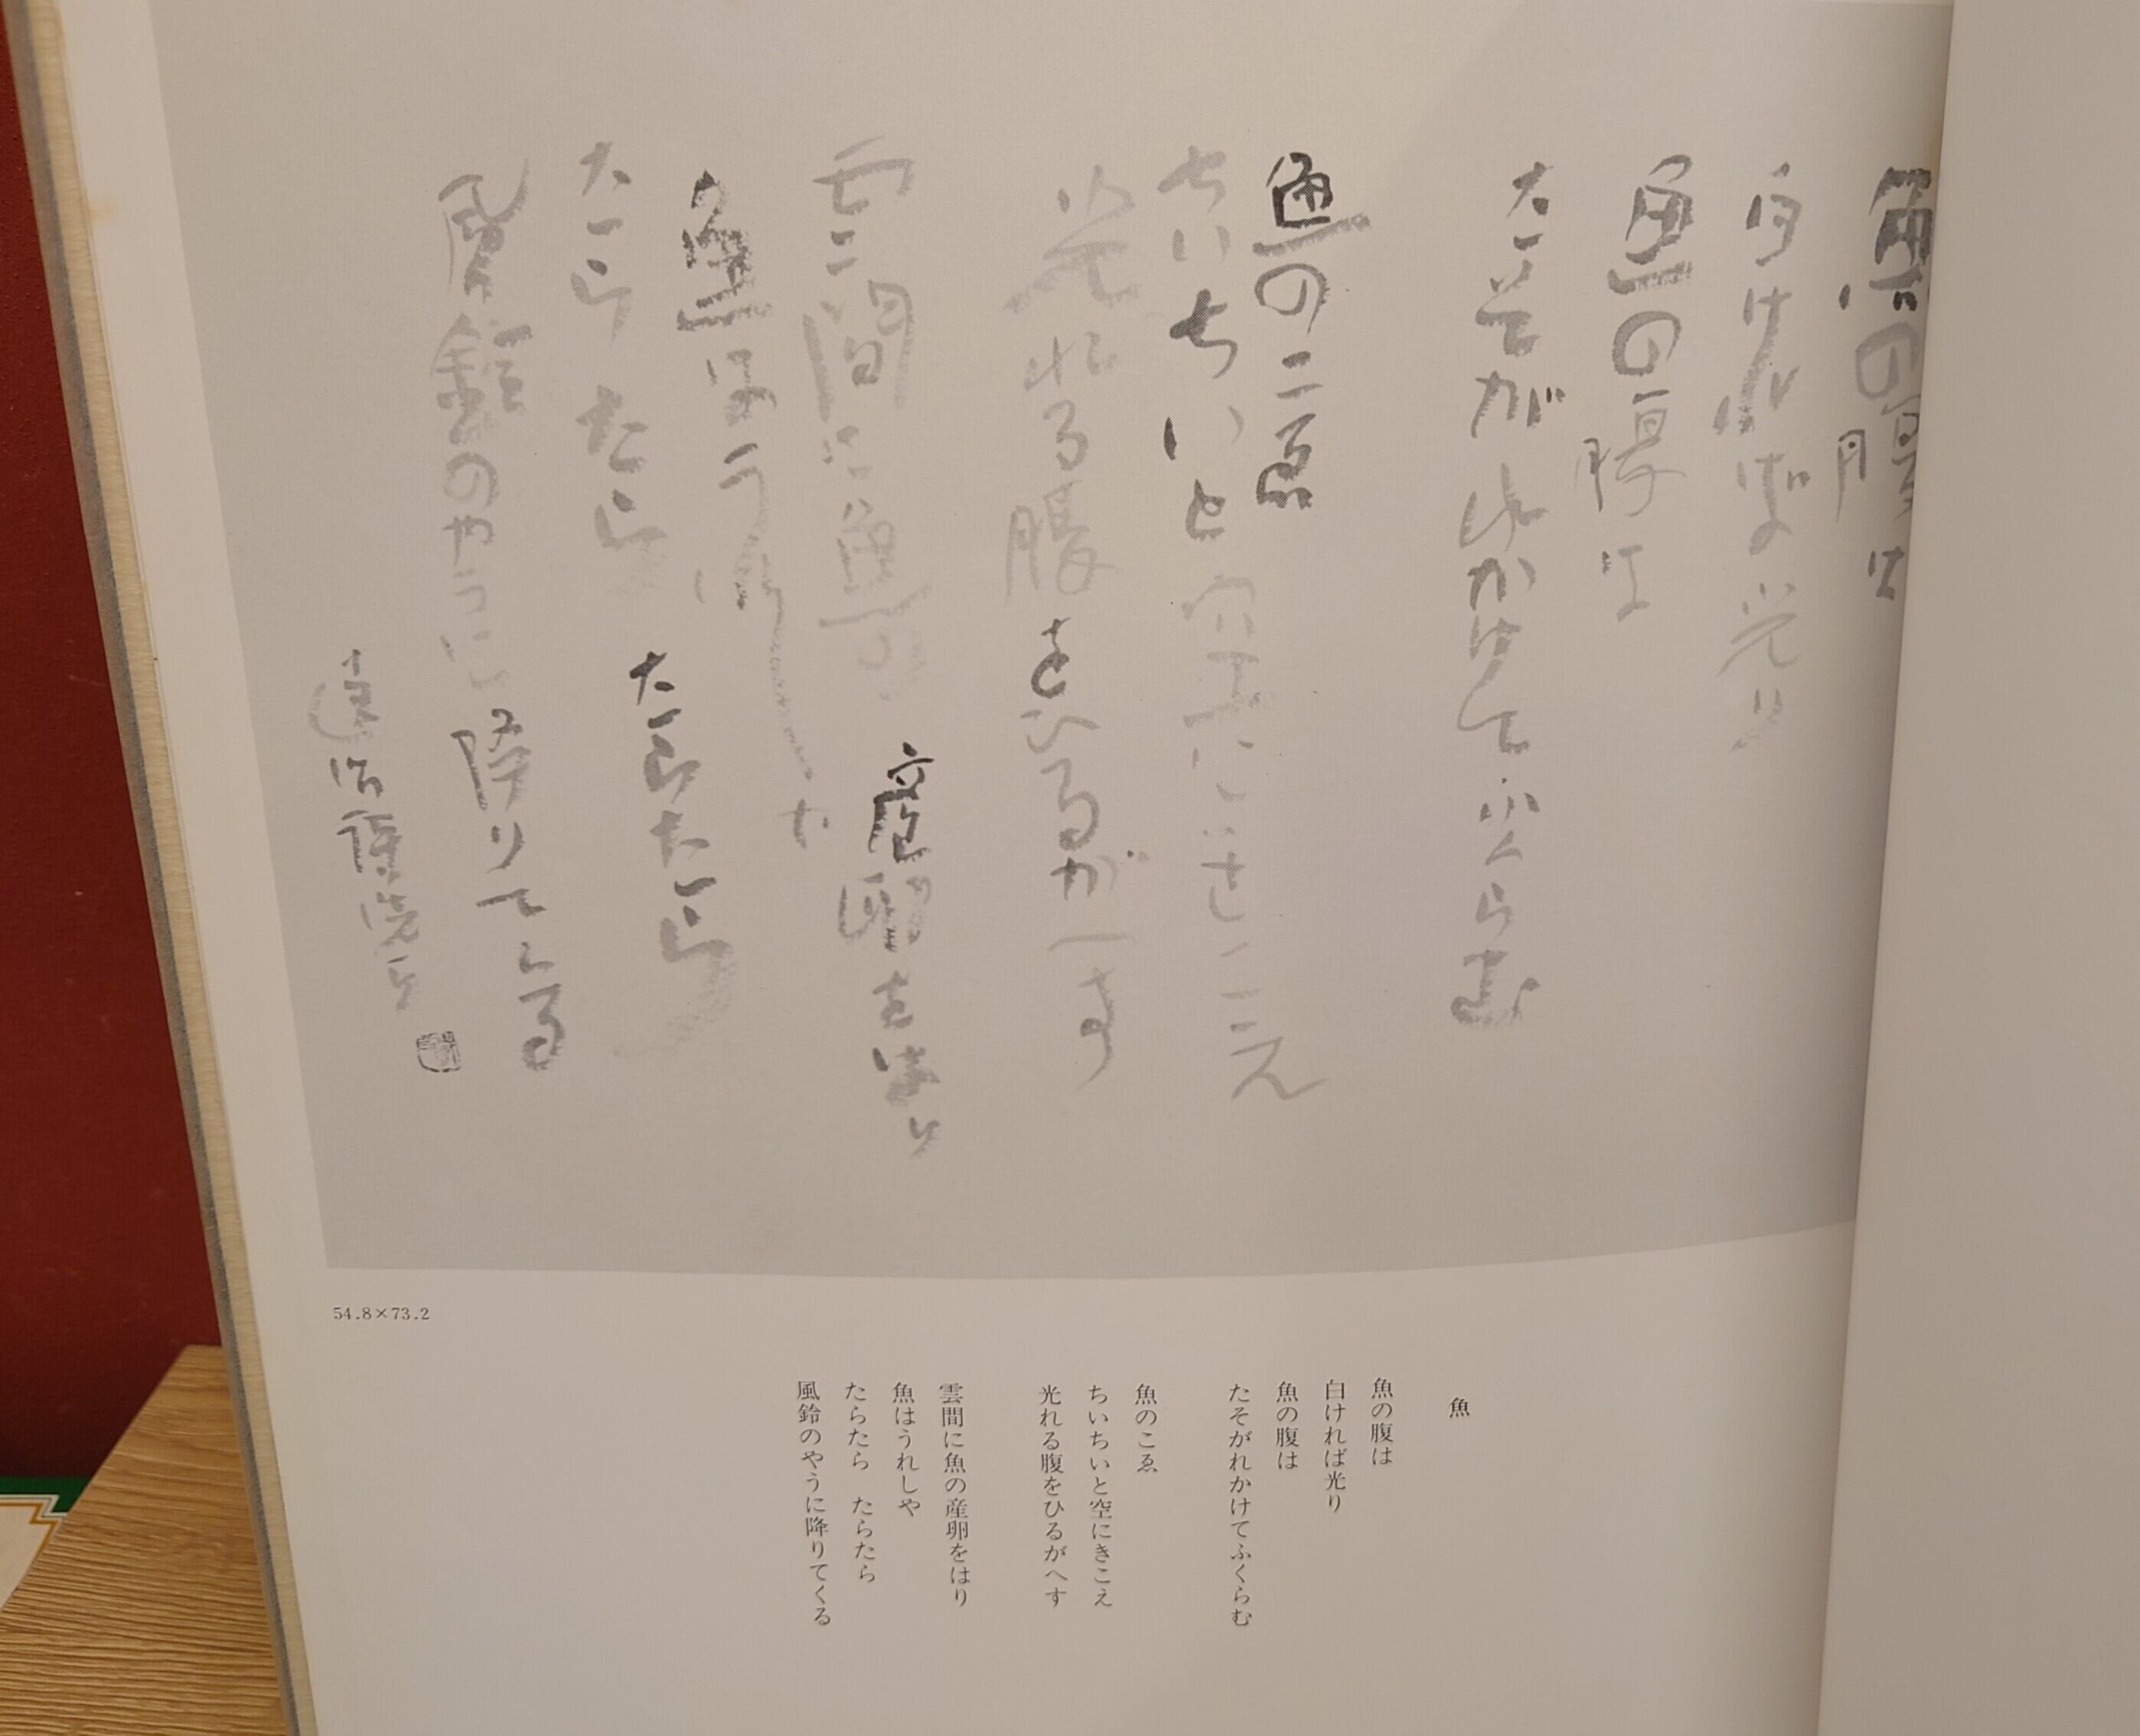 魚の腹は
白ければ光り
魚の腹は
たそがれかけてふくらむ
魚のこゑ
ちいちいと空にきこえ
光れる腹をひるがへす
雲間に魚の産卵をはり
魚はうれし
たらたら たらたら
風鈴のやうに降りてくる
54.8×73.2
魚
魚の腹は
白ければ光り
魚の腹は
たそがれかけてふくらむ
魚のこゑ
ちいちいと空にきこえ
光れる腹をひるがへす
雲間に魚の産卵をはり
魚はうれしや
たらたら たらたら
風鈴のやうに降りてくる